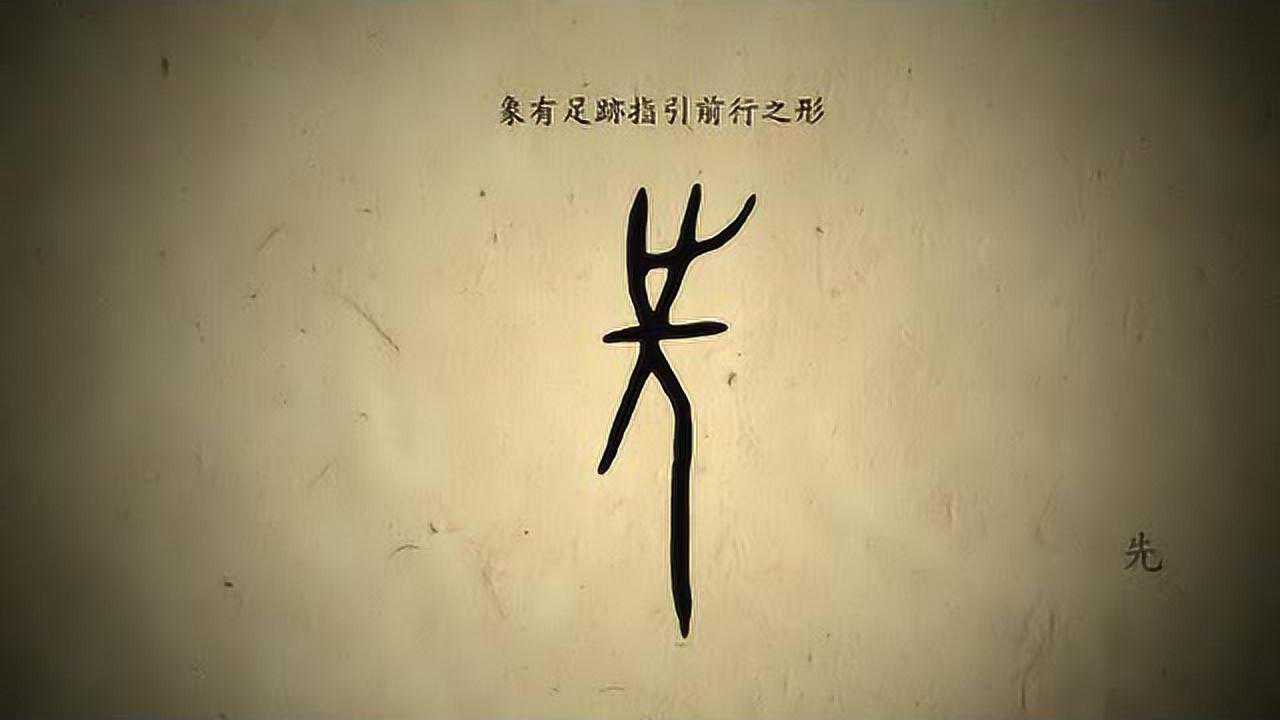 象有足跡指引前行之形
先